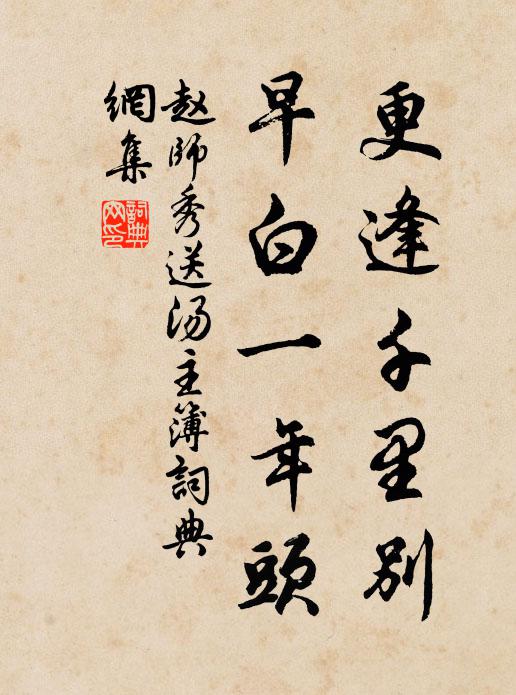 更逢千里别
早白一年頭
赵師秀送汤主簿詞典
網集
詞典
网印